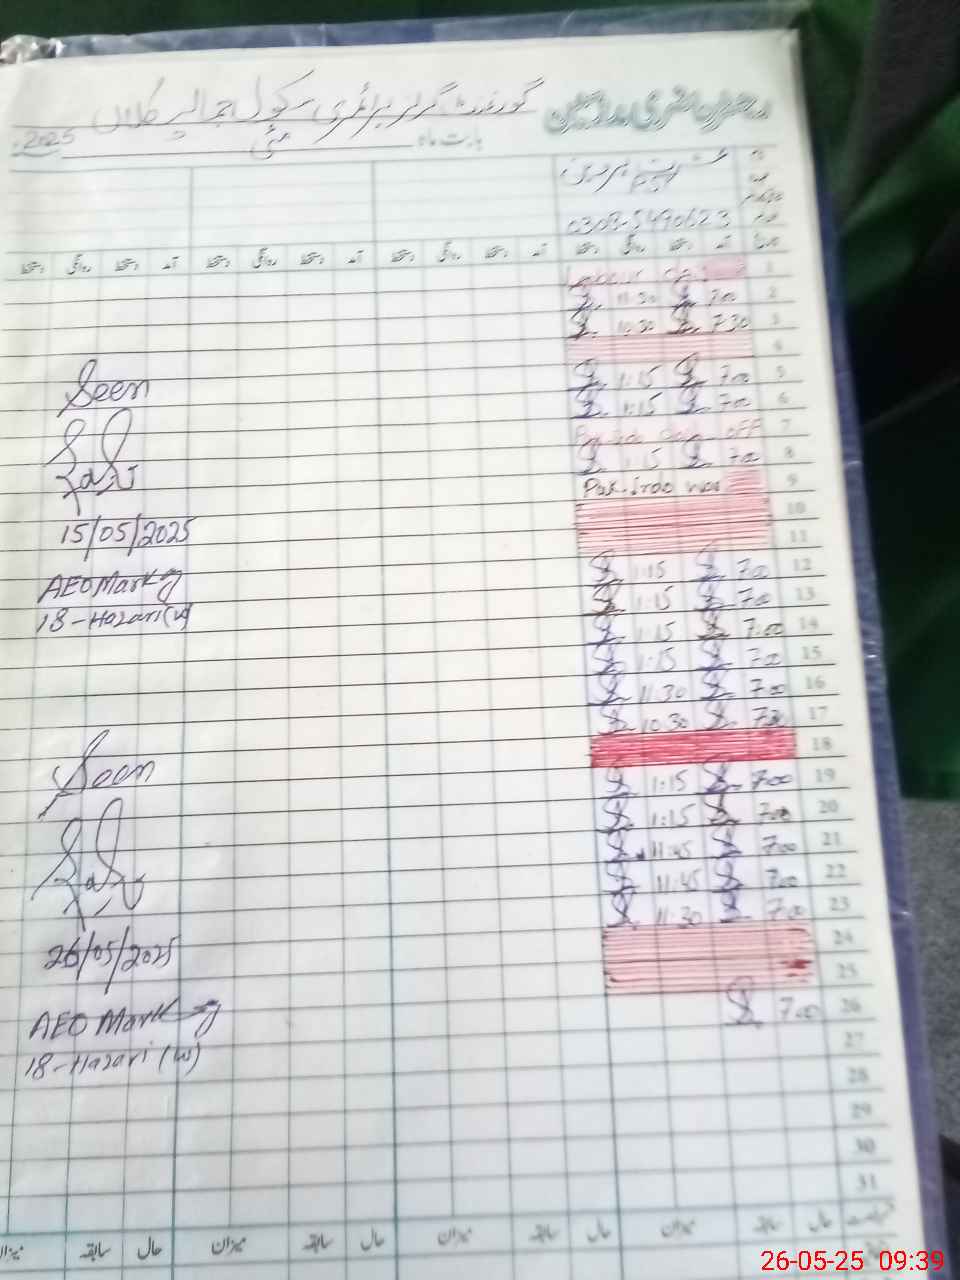 گورنمنٹ گرلز پرائمری سکول جمالپر کلاں
بابت ماہ مئی 2025
PST
0303-5490623
آمد دستخط روانگی دستخط آمد دستخط روانگی دستخط آمد دستخط روانگی دستخط
1 Labour day
2 7:00 11:30
3 7:30 10:30
4
5 7:00 1:15
6 7:00 1:15
7 OFF
8 7:00 1:15
9 Pak-Indo war
10
11
12 7:00 1:15
13 7:00 1:15
14 7:00 1:15
15 7:00 1:15
16 7:00 11:30
17 7:30 10:30
18
19 7:00 1:15
20 7:00 1:15
21 7:00 11:45
22 7:00 11:45
23 7:00 11:30
24
25
26 7:00
27
28
29
30
31
Seen
15/05/2025
AEO Markaz
18-Hazari (w)
Seen
26/05/2025
AEO Markaz
18-Hazari (w)
حال سابقہ میزان حال سابقہ میزان حال سابقہ میزان حال سابقہ میزان
26-05-25 09:39